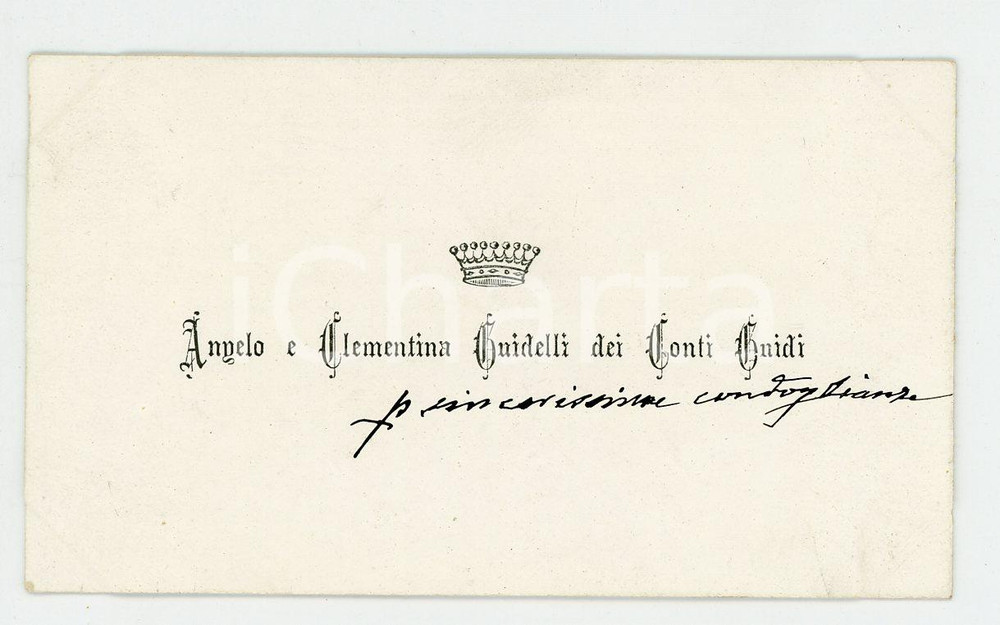 iCharta
Angelo e Clementina Guidelli dei Conti Guidi
p sincerissime condoglianze